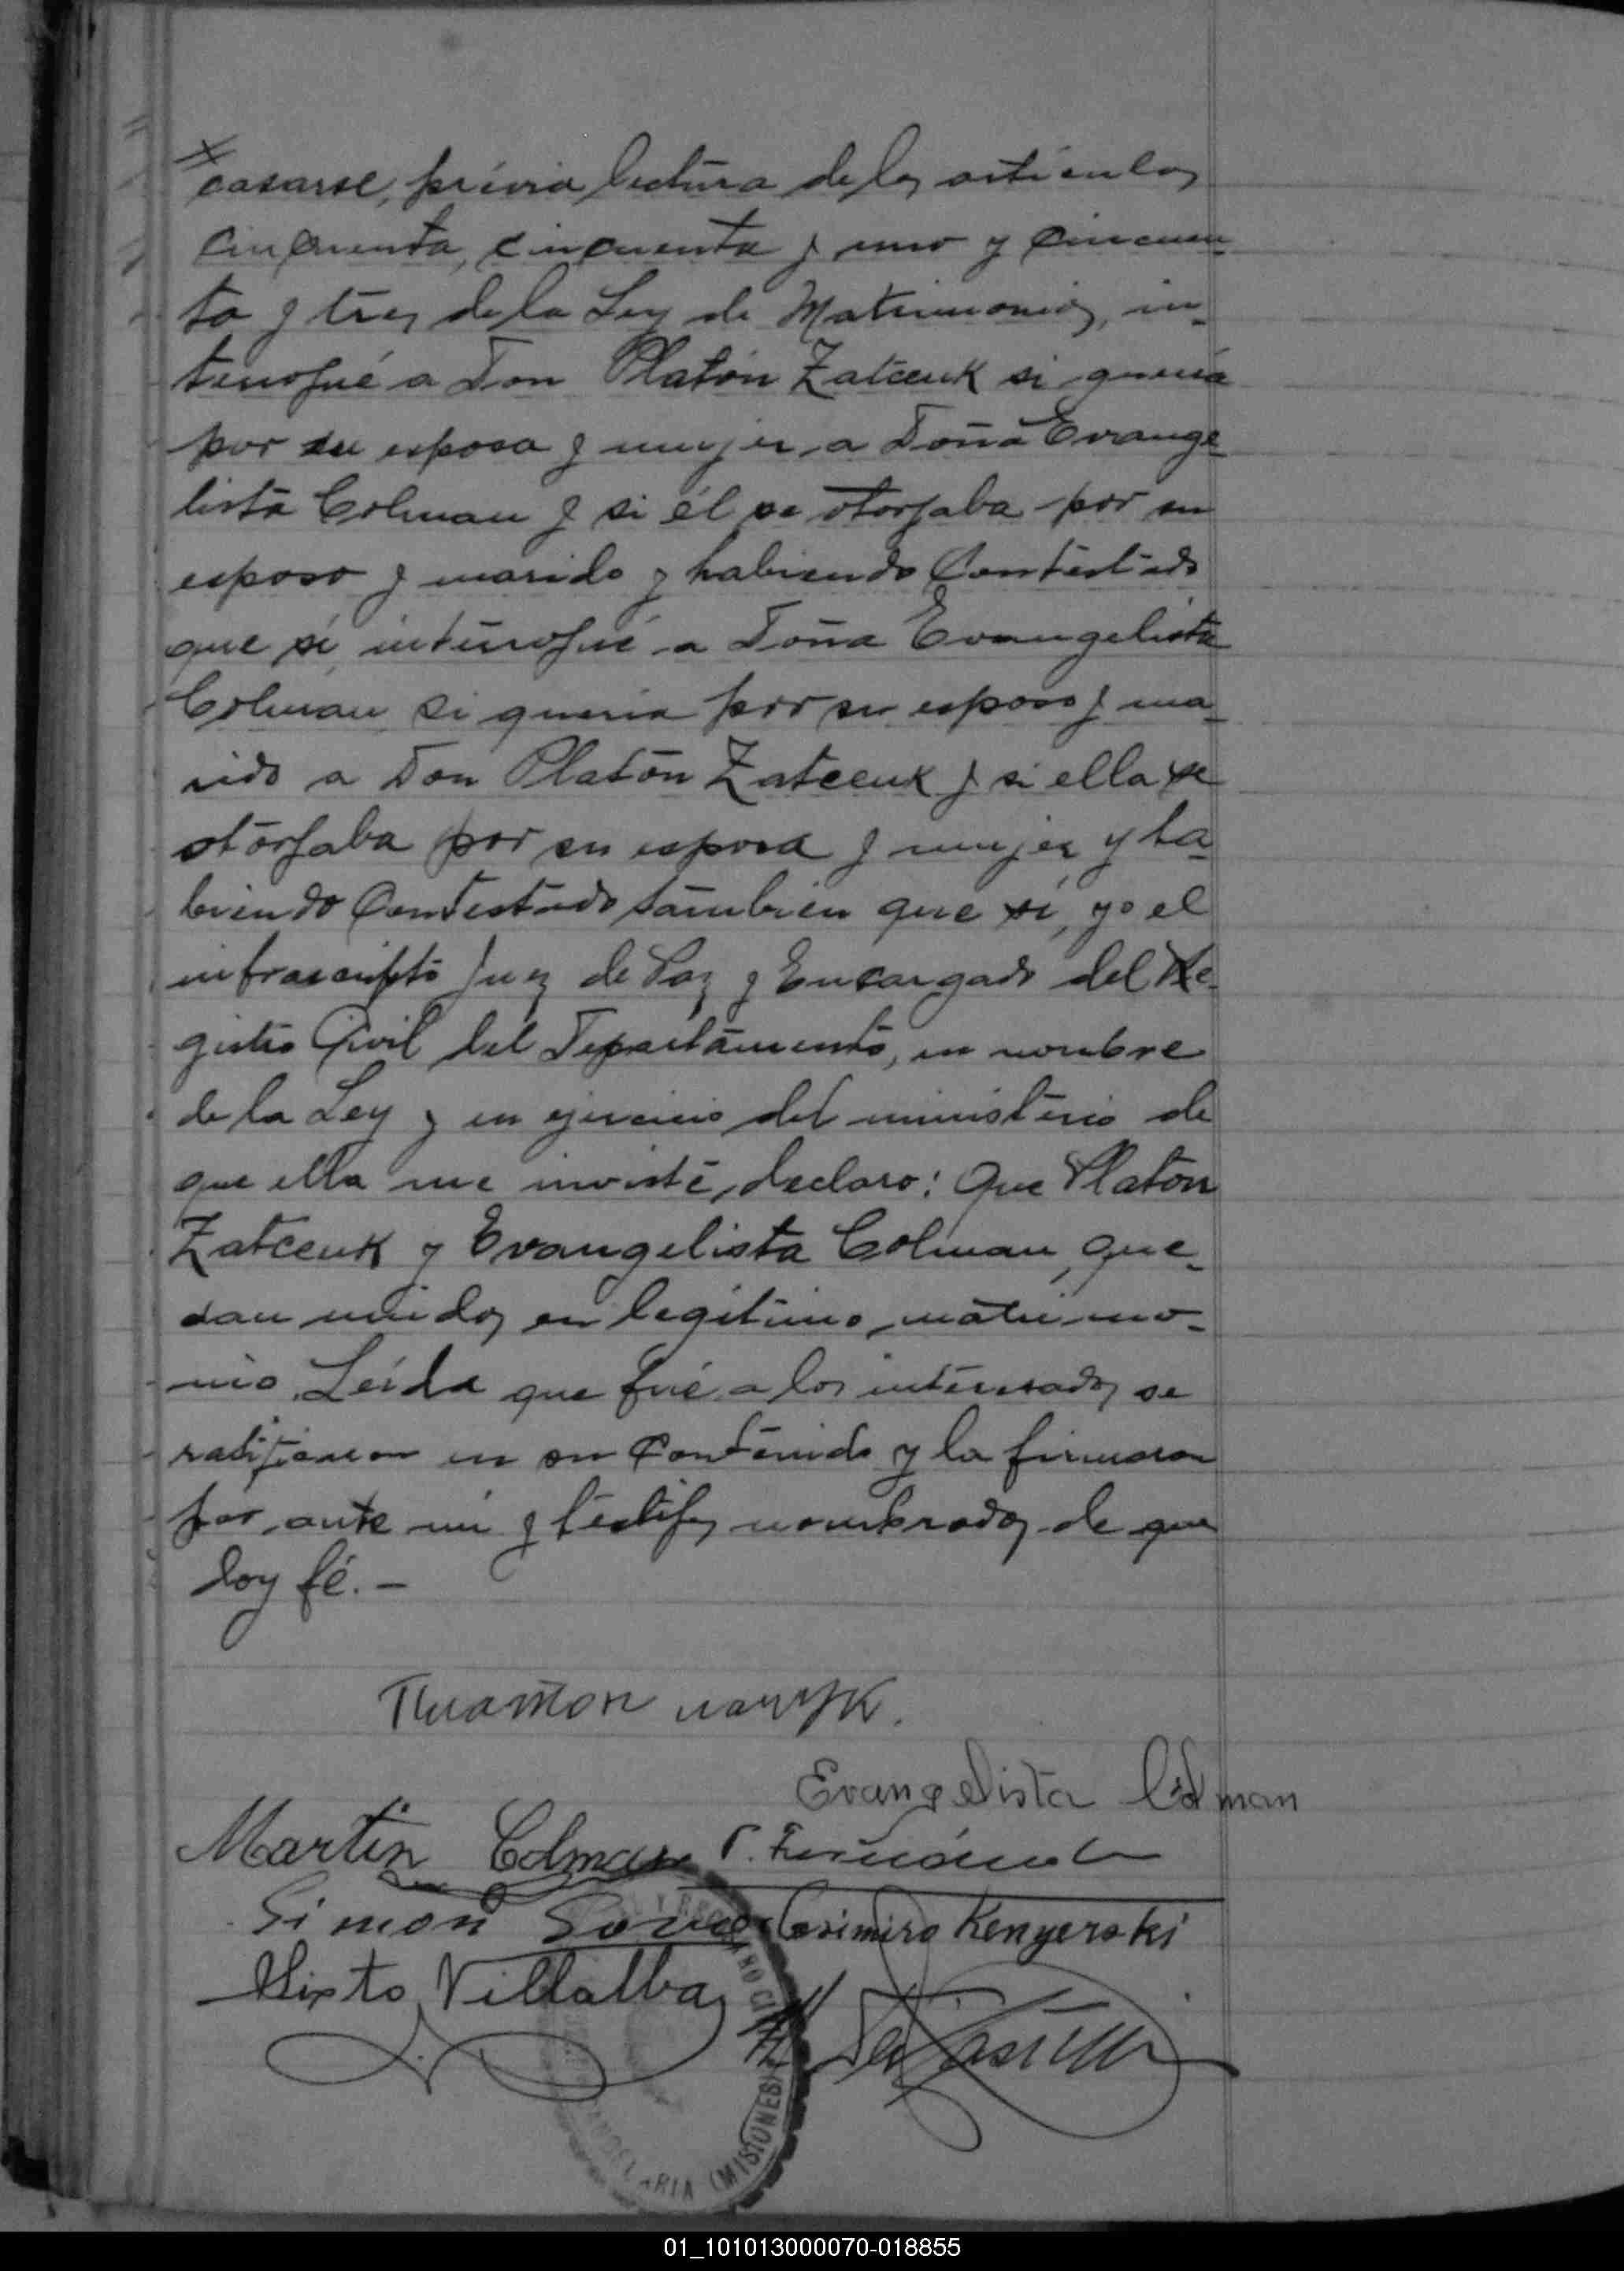 casarse, prévia lectura de los artículos
cincuenta, cincuenta y uno y cincuen-
ta y tres de la Ley de Matrimonio, in-
terrogué a Don Platón Zatceuk si quería
por su esposa y mujer a Doña Evange-
lista Colman y si él se otorgaba por su
esposo y marido y habiendo contestado
que sí, interrogué a Doña Evangelista
Colman si quería por su esposo y ma-
rido a Don Platón Zatceuk y si ella se
otorgaba por su esposa y mujer, y ha-
biendo contestado también que sí, yo el
infrascripto Juez de Paz y Encargado del Re-
gistro Civil del Departamento, en nombre
de la Ley y en ejercicio del ministerio de
que ella me inviste, declaro: Que Platon
Zatceuk y Evangelista Colman, que-
dan unidos en legítimo matrimo-
nio. Leída que fué a los interesados, se
ratificaron en su contenido y la firmaron
por ante mi y testigos nombrados de que
doy fé. -
Evangelista Colman
Martin Colman P. Fernández
Simon Casimiro Kenyerski
Sixto Villalba
CANDELARIA (MISIONES)
01_101013000070-018855